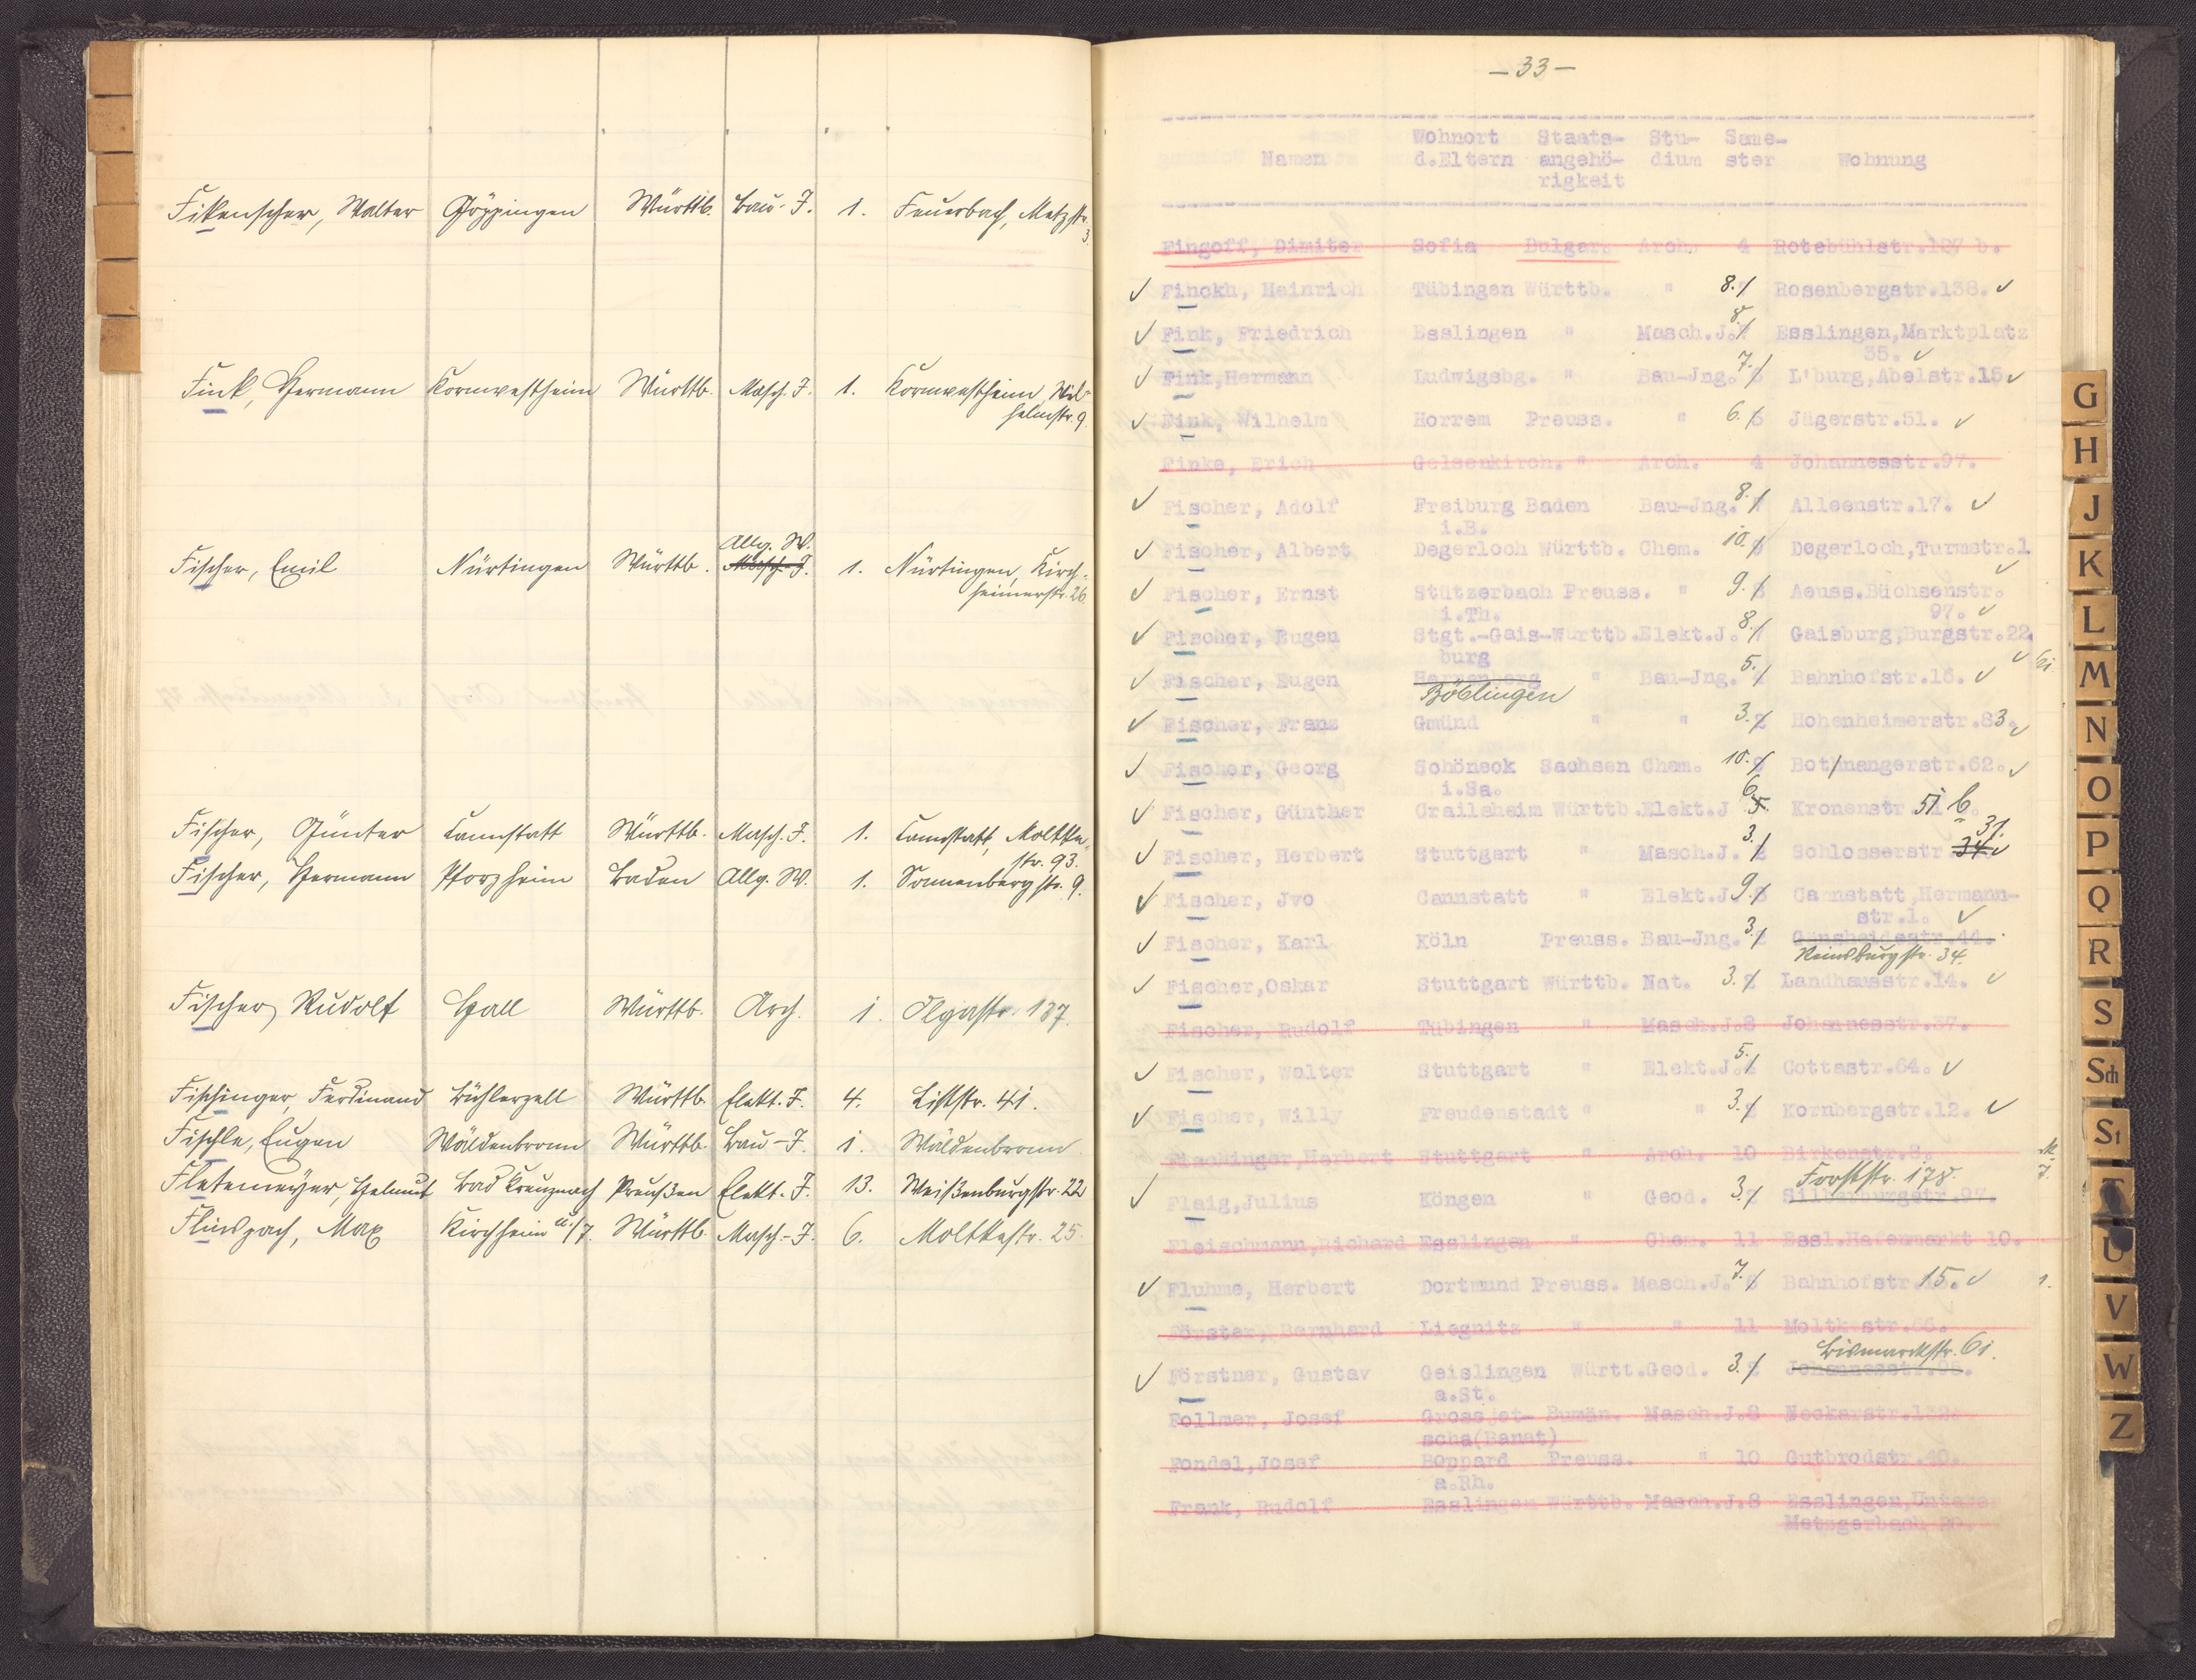 Fikenscher, Walter Göppingen Württb. Bau-I. 1. Feuerbach, Metzstr.
3.
Fink, Hermann Kornwestheim Württb. Masch. I. 1. Kornwestheim, Wil-
helmstr. 9.
Allg. W.
Fischer, Emil Nürtingen Württb. Masch-I. 1. Nürtingen, Kirch-
heimerstr. 26.
Fischer, Günter Cannstatt Württb. Masch. I. 1. Cannstatt, Moltke-
str. 93.
Fischer, Hermann Pforzheim Baden Allg. W. 1. Sonnenbergstr. 9.
Fischer, Rudolf Hall Württb. Arch. 1. Olgastr. 137.
Fischinger, Ferdinand Bühlerzell Württb. Elekt. I. 4. Liststr. 41.
Fischle, Eugen Wäldenbronn Württb. Bau-I. 1. Wäldenbronn
Fletemeyer, Helmut Bad Kreuznach Preußen Elekt. I. 13. Weißenburgstr. 22
Flinspach, Max Kirchheim u/T. Württb. Masch.-I. 6. Moltkestr. 25.
- 33 -
Wohnort Staats- Stu- Seme-
Namen d.Eltern angehö- dium ster Wohnung
rigkeit
Fingoff, Dimiter Sofia Bulgar. Arch. 4 Rotebühlstr.127 b.
Finckh, Heinrich Tübingen Württb. " 8. Rosenbergstr.138.
Fink, Friedrich Esslingen " Masch.J. 8. Esslingen,Marktplatz
35.
Fink,Hermann Ludwigsbg. " Bau-Jng. 7. L'burg,Abelstr.15
Fink, Wilhelm Horrem Preuss. " 6. Jägerstr.51.
Finke, Erich Gelsenkirch. " Arch. 4 Johannesstr.97.
Fischer, Adolf Freiburg Baden Bau-Jng. 8. Alleenstr.17.
i.B.
Fischer, Albert Degerloch Württb. Chem. 10. Degerloch,Turmstr.1
Fischer, Ernst Stützerbach Preuss. " 9. Aeuss.Büchsenstr.
i.Th. 97.
Fischer, Eugen Stgt.-Gais-Württb.Elekt.J. 8. Gaisburg,Burgstr.22.
burg
Fischer, Eugen Herrenberg " Bau-Jng. 5. Bahnhofstr.16.
Böblingen
Fischer, Franz Gmünd " " 3. Hohenheimerstr.83.
Fischer, Georg Schöneck Sachsen Chem. 10. Botnangerstr.62.
i.Sa.
Fischer, Günther Crailsheim Württb.Elekt.J 6. Kronenstr 51 b.
31.
Fischer, Herbert Stuttgart " Masch.J. 3. Schlosserstr 34
Fischer, Jvo Cannstatt " Elekt.J. 9. Cannstatt,Hermann-
str.1.
Fischer, Karl Köln Preuss. Bau-Jng. 3. Gänsheidestr.44.
Reinsburgstr. 34.
Fischer,Oskar Stuttgart Württb. Nat. 3. Landhausstr.14.
Fischer, Rudolf Tübingen " Masch.J.8 Johannesstr.37.
Fischer, Walter Stuttgart " Elekt.J. 5. Cottastr.64.
Fischer, Willy Freudenstadt " " 3. Kornbergstr.12.
Fischinger,Herbert Stuttgart " Arch. 10 Birkenstr.8.
Forststr. 178.
Flaig,Julius Köngen " Geod. 3. Silberburgstr.97.
Fleischmann,Richard Esslingen " Chem. 11 Essl.Hafenmarkt 10.
Fluhme, Herbert Dortmund Preuss. Masch.J. 7. Bahnhofstr.15.
Förster, Bernhard Liegnitz " " 11 Moltkestr.66.
Bismarckstr. 61.
Förstner, Gustav Geislingen Württ.Geod. 3. Johannesstr.
a.St.
Follmer, Josef Grossjet- Rumän. Masch.J.8 Neckarstr.132.
scha(Banat)
Fondel,Josef Boppard Preuss. " 10 Gutbrodstr.40.
a.Rh.
Frank, Rudolf Esslingen Württb. Masch.J.8 Esslingen,Untere
Metzgerbach 20.
G
H
J
K
L
M
N
O
P
Q
R
S
Sch
St
T
U
V
W
Z